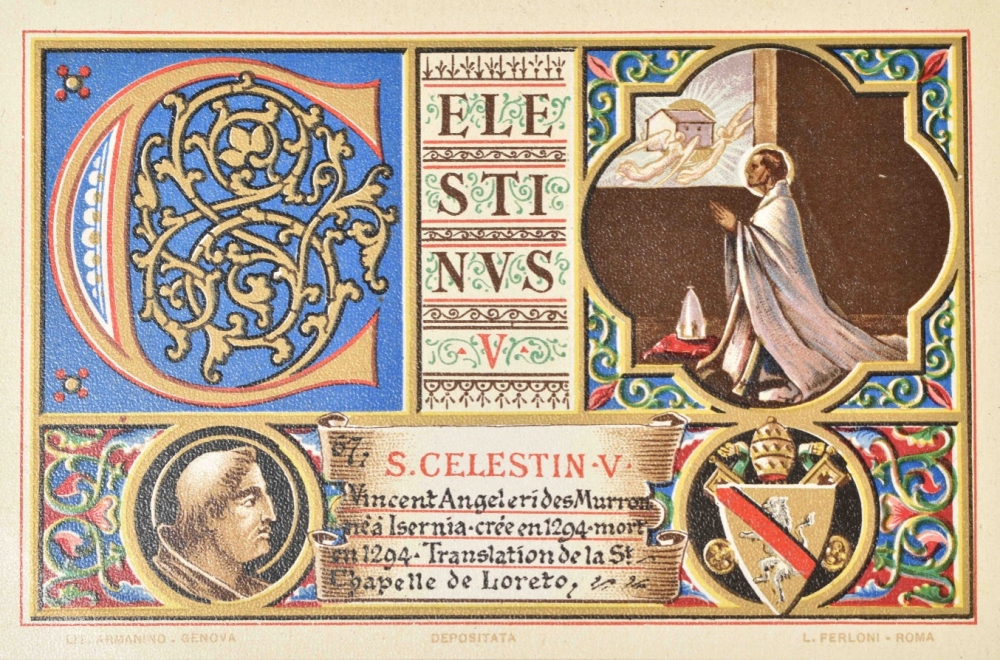 C
ELE
STI
NVS
·V·
67;
S. CELESTIN·V·
Vincent Angeleri des Murron
né à Isernia·crée en 1294·mort
en 1294·Translation de la St
Chapelle de Loreto,
LIT. ARMANINO - GENOVA
DEPOSITATA
L. FERLONI - ROMA